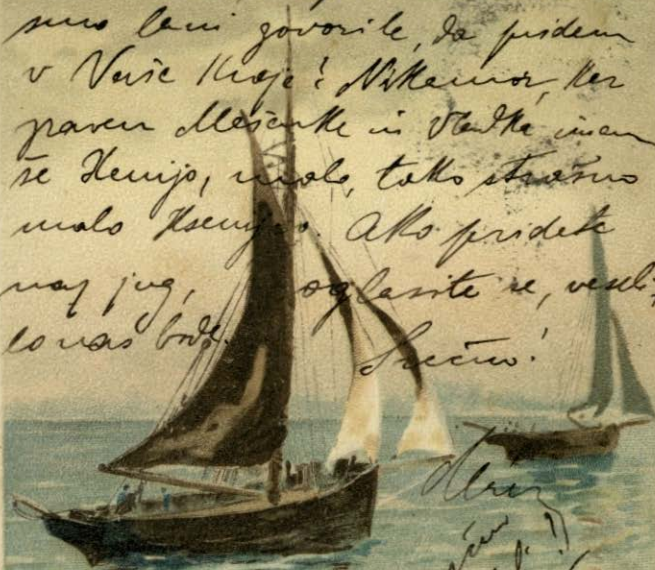 smo lani govorile, da pridem
v Vaše kraje? Nikamor, ker
poven Mešenke in Vladka imam
še Ksenijo, malo, tako strašno
malo Ksenijo. Ako pridete
na jug, oglasite se, veseli
lo nas bode.
Srečno!